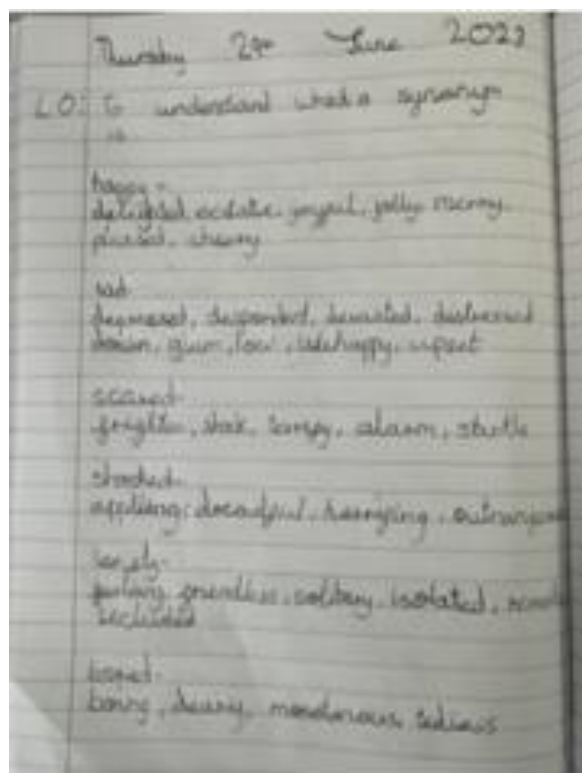 Thursday June
LO: To understand what a synonym
is
happy -
delighted, ecstatic, joyful, jolly, merry,
pleased, cheery
sad
depressed, despondent, devasted, distressed
down, glum, low, unhappy, upset
scared -
frighten, alarm, startle
shocked -
dreadful, horrifying,
lonely -
friendless, solitary, isolated,
secluded
bored -
boring, dreary, monotonous, tedious